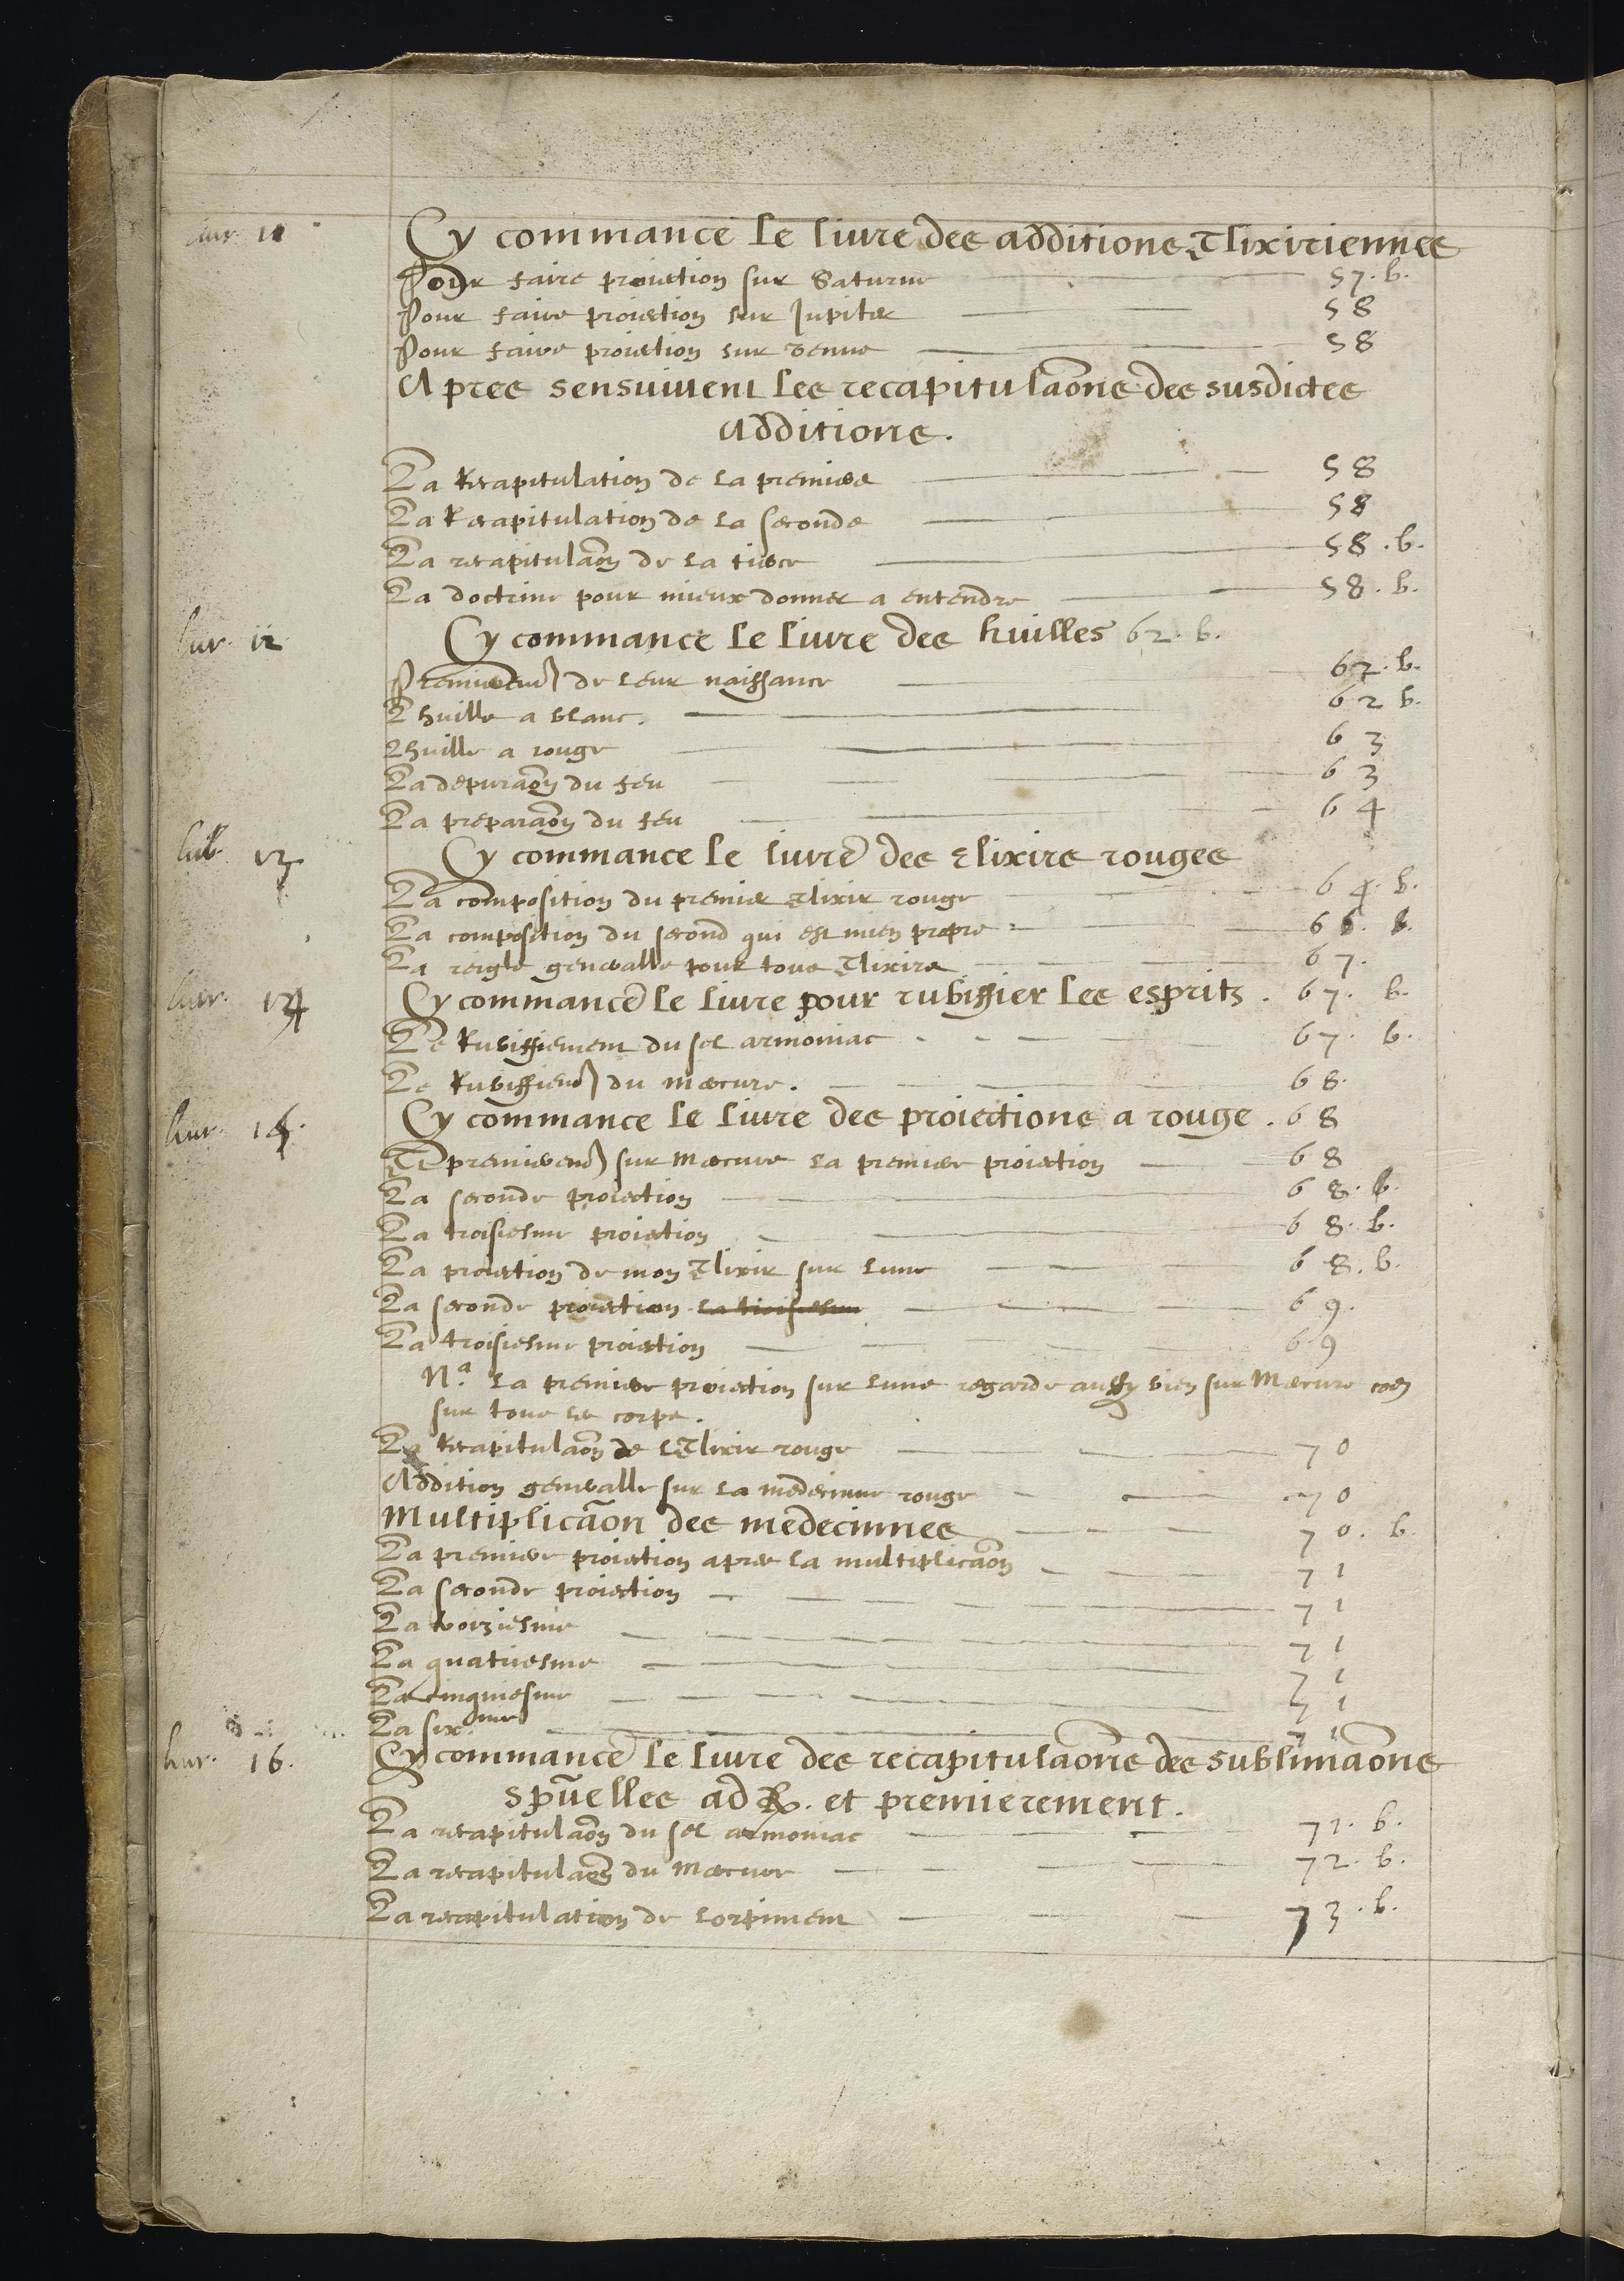 liur. 11 Cy commance le liure des additions Elixiriennes
Pour faire proiection sur Saturne 57. b.
Pour faire proiection sur Jupiter 58
Pour faire proiection sur venus 58
Apres sensuiuent les recapitulaõns des susdictes
additions.
La Recapitulation de la premiere 58
La Recapitulation de la seconde 58
La recapitulaõn de la tierce 58. b.
La doctrine pour mieux donner a entendre 58. b.
liur. 12 Cy commance le liure des huilles 62. b.
Premierem͂ de leur naissance 62. b.
Lhuille a blanc. 62 b.
Lhuille a rouge 63
La depuraõn du feu 63
La preparaõn du feu 64
liur. 13 Cy commance le liure des Elixirs rouges
La composition du premier Elixir rouge 64. b.
La composition du second qui est mien propre 66. b.
La reigle generalle pour tous Elixirs 67.
liur. 14 Cy commance le liure pour rubiffier les esprits. 67. b.
Le Rubiffiement du sel armoniac 67. b.
Le Rubiffiem͂ du mercure. 68.
liur. 15. Cy commance le liure des proiections a rouge. 68
Et premierem͂ sur mercure la premiere proiection 68
La seconde proiection 68. b.
La troisiesme proiection 68. b.
La proiection de mon Elixir sur lune 68. b.
La seconde proiection la troisiesme 69.
La troisiesme proiection 69
Nª. la premiere proiection sur lune regarde aussy bien sur Mercure coe͂
sur tous les corps.
La Recapitulaõn de lElixir rouge 70
Addition generalle sur la medecinne rouge 70
Multiplicaõn des medecinnes 70. b.
La premiere proiection apres la multiplicaõn 71
La seconde proiection 71
La troiziesme 71
La quatriesme 71
La cinquiesme 71
La six.me 71
liur. 16. Cy commance le liure des recapitulaõns des sublimaõns
spũelles ad R. et premierement.
La recapitulaõn du sel armoniac 72. b.
La recapitulaõn du mercure 72. b.
La recapitulation de lorpiment 73. b.